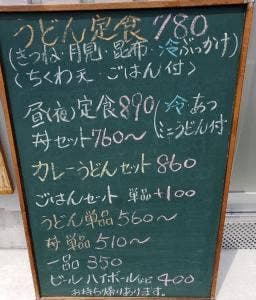 うどん定食 780
(きつね・月見・昆布・冷ぶっかけ)
(ちくわ天・ごはん付)
昼(夜)定食890(冷 あつ
丼セット760～ ミニうどん付)
カレーうどんセット 860
ごはんセット 単品+100
うどん単品560～
丼 単品510～
一品 350
ビール ハイボールなど 400
お持ち帰りあります。